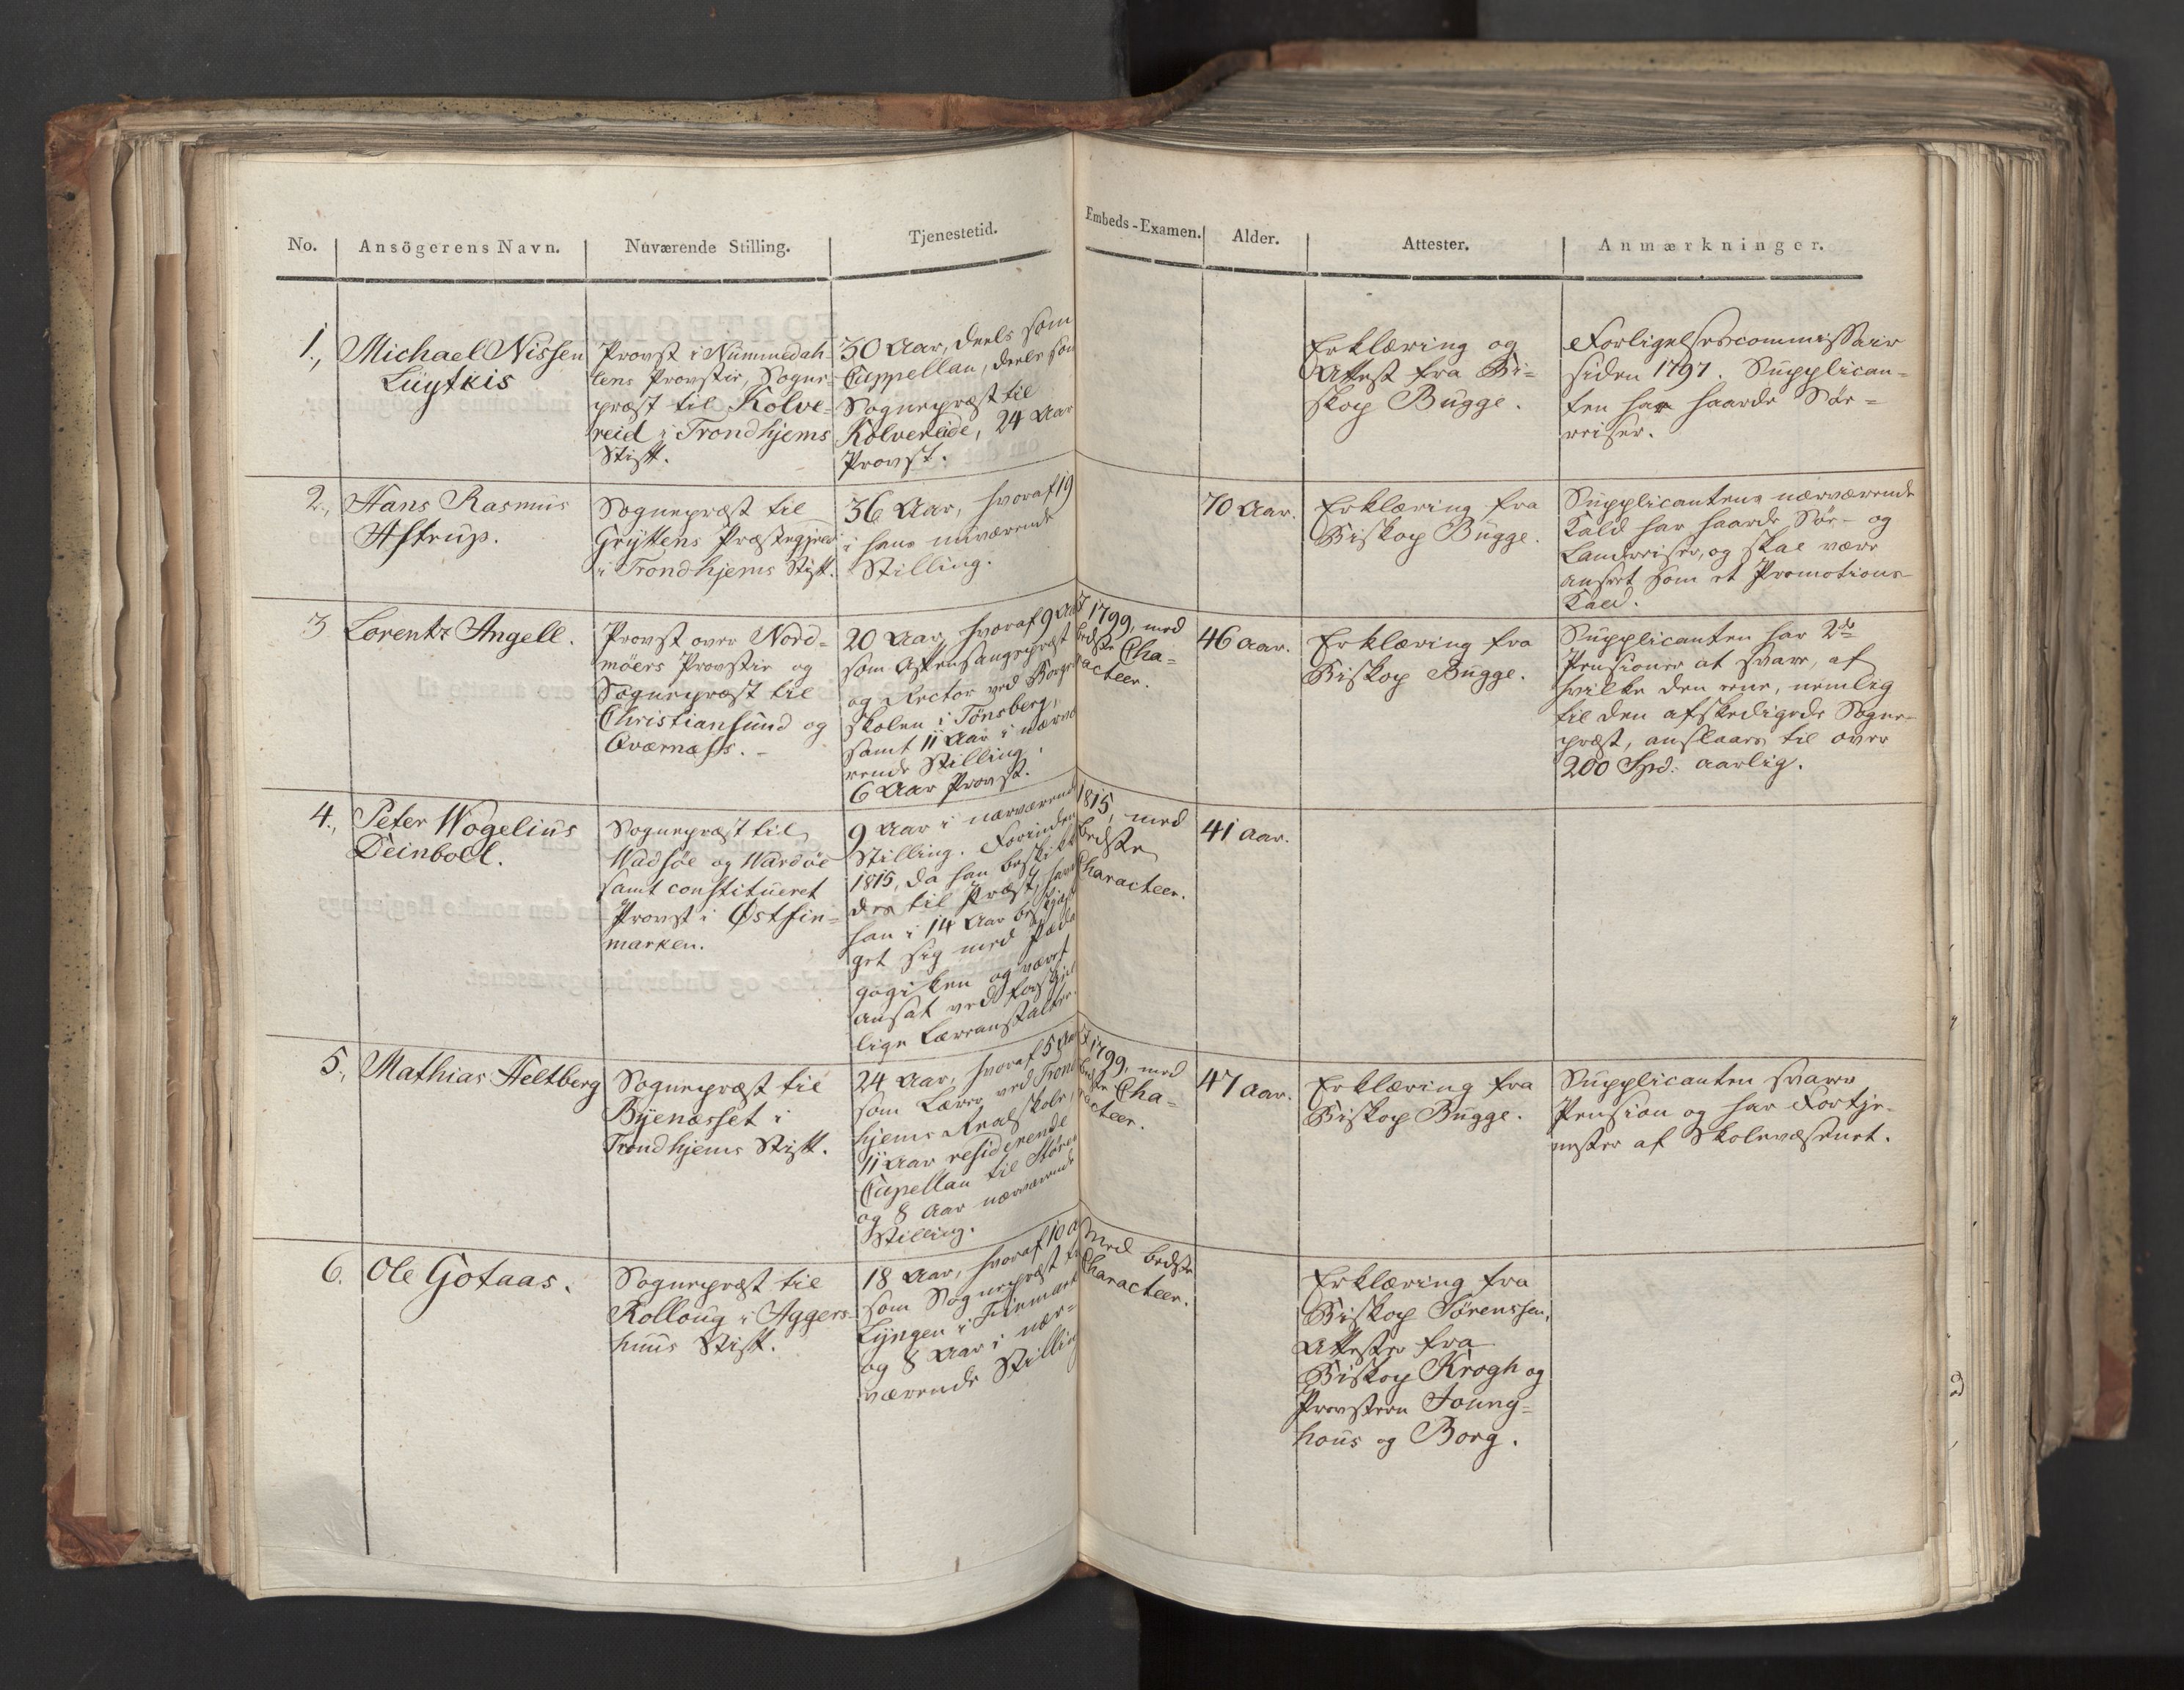 No. Ansögerens Navn. Nuværende Stilling. Tjenestetid. Embeds-Examen. Alder. Attester. Anmærkninger.
1., Michael Nissen
Lüytkis
Provst i Nummedah-
lens Provstie, Sogne-
præst til Kolve-
reid i Trondhjems
Stift.
30 Aar, deels som
Cappellan, deels som
Sognepræst til
Kolvereide, 24 Aar
Provst.
Erklæring og
Attest fra Bi-
skop Bugge.
Forligelsescommissair
siden 1797. Supplican-
ten har haarde Sør-
reiser.
2., Hans Rasmus
Astrup.
Sognepræst til
Gryttens Præstegjeld
i Trondhjems Stift.
36 Aar, hvoraf 19
i hans nuværende
Stilling.
70 Aar.
Erklæring fra
Biskop Bugge.
Supplicantens nærværende
Kald har haarde Sør- og
Landreiser, og skal være
anseet som et Promotions-
Kald.
3 Lorentz Angell.
Provst over Nord-
möers Provstie og
Sognepræst til
Christiansund og
Qværnæss.
20 Aar, hvoraf 9 Aar
som Aftensangspræst
og Rector ved Borger
skolen i Tönsberg,
samt 11 Aar i nærvæ
rende Stilling.
6 Aar Provst.
I 1799, med
bedste Cha-
racteer.
46 Aar.
Erklæring fra
Biskop Bugge.
Supplicanten har 2de
Pensioner at svare, af
hvilke den eene, nemlig
til den afskedigede Sogne-
præst, anslaaes til over
200 Spd. aarlig.
4., Peter Wogelius
Deinboll.
Sognepræst til
Wadsöe og Wardöe
samt constitueret
Provst i Østfin-
marken.
9 Aar i nærværende
Stilling. Forinden
1815, da han beskikke
des til Præst, havde
han i 14 Aar beskjæfti
get sig med Pæda
gogiken og været
ansat ved forskjel
lige Læreanstalter.
1815, med
bedste
Characteer.
41 Aar.
5., Mathias Heltberg
Sognepræst til
Byenæsset i
Trondhjems Stift.
24 Aar, hvoraf 5 Aar
som Lærer ved Trond
hjems Realskole,
11 Aar residerende
Capellan til Stören
og 8 Aar nærværende
Stilling.
I 1799, med
bedste Cha-
racteer.
47 Aar.
Erklæring fra
Biskop Bugge.
Supplicanten svarer
Pension og har Fortje-
nester af Skolevæsenet.
6. Ole Gotaas.
Sognepræst til
Rolloug i Aggers-
huus Stift.
18 Aar, hvoraf 10 A
som Sognepræst til
Lyngen i Finmark
og 8 Aar i nær-
værende Stilling
Med bedste
Characteer.
Erklæring fra
Biskop Sörenssen,
Attester fra
Biskop Krogh og
Provsterne Joung-
hous og Borg.